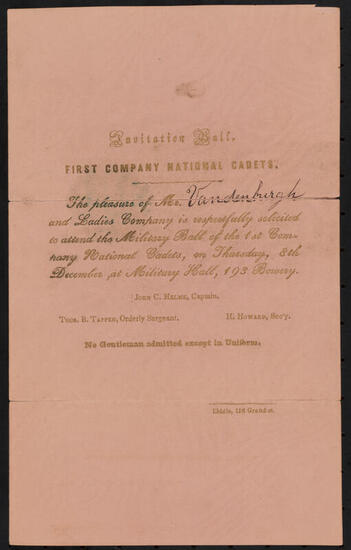 Invitation Ball.
FIRST COMPANY NATIONAL CADETS.
The pleasure of Mr. Vandenburgh
and Ladies Company is respectfully solicited
to attend the Military Ball of the 1st Com-
pany National Cadets, on Thursday, 8th
December, at Military Hall, 193 Bowery.
John C. Helme, Captain.
Thos. B. Tappen, Orderly Sergeant. H. Howard, Sec'y.
No Gentleman admitted except in Uniform.
116 Grand st.